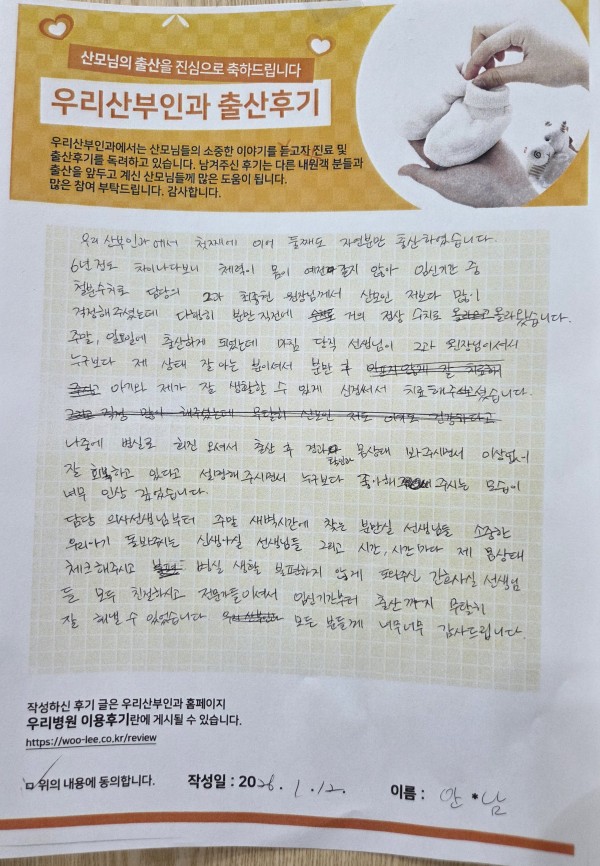 산모님의 출산을 진심으로 축하드립니다
우리산부인과 출산후기
우리산부인과에서는 산모님들의 소중한 이야기를 듣고자 진료 및
출산후기를 독려하고 있습니다. 남겨주신 후기는 다른 내원객 분들과
출산을 앞두고 계신 산모님들께 많은 도움이 됩니다.
많은 참여 부탁드립니다. 감사합니다.
우리 산부인과에서 첫째에 이어 둘째도 자연분만 출산하였습니다.
6년정도 차이나다보니 체력이 몸이 예전과 같지 않아 임신기간 중
철분수치로 담당의 2과 원장님께서 산모인 저보다 많이
걱정해주셨는데 다행히 분만 직전에 거의 정상 수치로 올라왔습니다.
주말, 일요일에 출산하게 되었는데 마침 당직 선생님이 2과 원장님이셔서
누구보다 제 상태 잘 아는 분이셔서 분만 후
아기와 제가 잘 생활할 수 있게 신경써서 치료해주셨습니다.
나중에 병실로 회진 오셔서 출산 후 경과와 몸상태 봐주시면서 이상없이
잘 회복하고 있다고 설명해주시면서 누구보다 좋아해 주시는 모습이
너무 인상 깊었습니다.
담당 의사선생님부터 주말 새벽시간에 찾는 분만실 선생님들 소중한
우리아기 돌봐주시는 신생아실 선생님들 그리고 시간, 시간마다 제 몸상태
체크해주시고 병실 생활 불편하지 않게 도와주신 간호사실 선생님
들 모두 친절하시고 전문가들이셔서 임신기간부터 출산까지 무탈히
잘 해낼 수 있었습니다 모든 분들께 너무너무 감사드립니다.
작성하신 후기 글은 우리산부인과 홈페이지
우리병원 이용후기란에 게시될 수 있습니다.
https://woo-lee.co.kr/review
위의 내용에 동의합니다. 작성일 : 2026. 1. 12. 이름 : 안*남